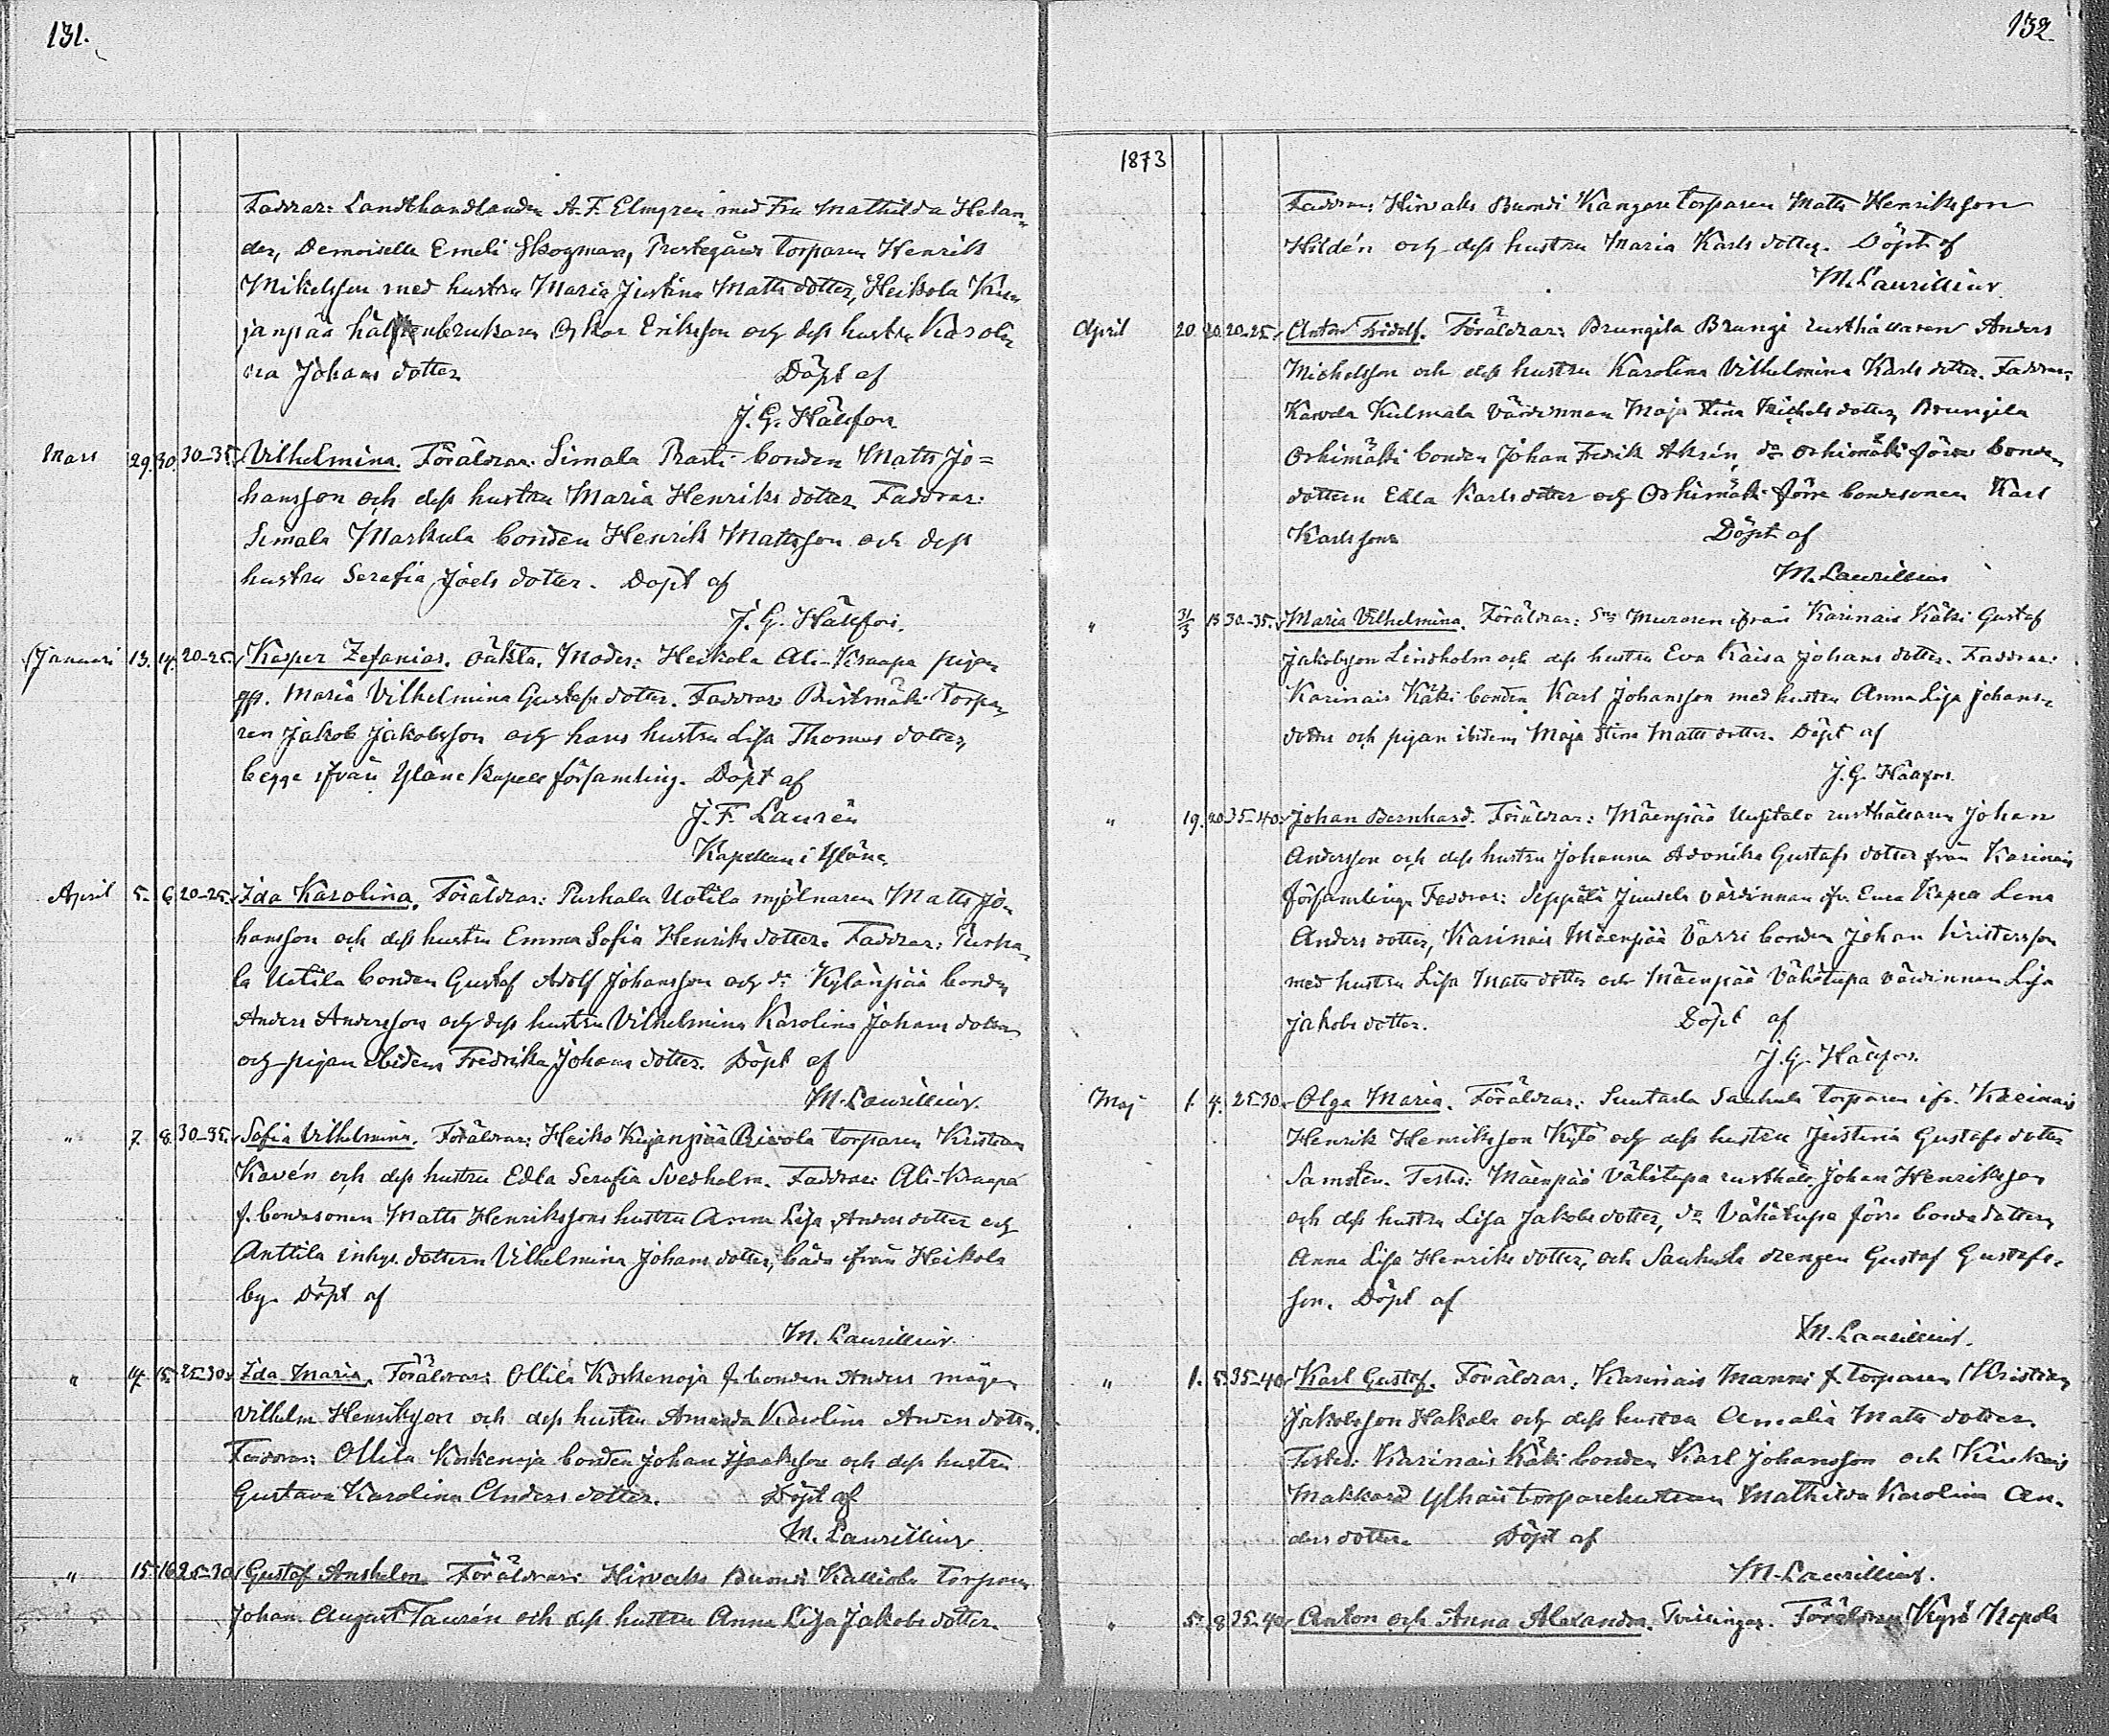 131.
Faddrar: Landthandlanden A. F. Elmgren med Fru Mathilda Helan-
der, Demoiselle Emeli Skogman, Prestegårds torparen Henrik
Mikelsson med hustru Maria Justina Matts dotter, Heikola
janpää hälftenbrukaren Oskar Eriksson och dess hustru Karoli
na Johans dotter Döpt af
J. G. Hällfors
Mars 29. 30. 30-35. Vilhelmina. Föräldrar: Simala Prasti bonden Matts Jo=
hansson och dess hustru Maria Henriks dotter Faddrar:
Simala Markula bonden Henrik Mattsson och dess
hustru Serafia Joels dotter. Döpt af
J. G. Hällfors.
Januari 13. 14. 20-25. Kasper Zefanias. oäkta. Moder: Heikola Ali-Kraapa pigan
Maria Vilhelmina Gustafs dotter. Faddrar torpa-
ren Jakob Jakobsson och hans hustru Lisa Thomas dotter,
begge ifrån Yläne Kapell församling. Döpt af
J. F. Laurén
Kapellan i Yläne
April 5. 6. 20-25. Ida Karolina. Föräldrar: Purhala Uotila mjölnaren Matts Jo-
hansson och dess hustru Emma Sofia Henriks dotter. Faddrar: Purha-
la Uotila bonden Gustaf Adolf Johansson och d:o Kylänpää bonden
Anders Andersson och dess hustru Vilhelmina Karolina Johans dotter
och pigan ibidem Fredrika Johans dotter. Döpt af
M. Laurillius.
" 7. 8. 30-35. Sofia Vilhelmina. Föräldrar: Heiko Kujanpää Rivola torparen Kristian
Kavén och dess hustru Edla Serafia Svedholm. Faddrar: Ali-Kraapa
f. bondesonen Matts Henrikssons hustru Anna Lisa Anders dotter och
Anttila inhys. dottern Vilhelmina Johans dotter, båda från Heikola
by. Döpt af
M. Laurillius.
" 14. 15. 25-30. Ida Maria. Föräldrar: Ollila Koskenoja f. bonden Anders mågen
Vilhelm Henriksson och dess hustru Amanda Karolina Anders dotter.
Faddrar: Ollila Koskenoja bonden Johan Isaaksson och dess hustru
Gustava Karolina Anders dotter. Döpt af
M. Laurillius
" 15. 16. 25-30. Gustaf Anshelm Föräldrar: Hirvaks Buondi Kalliola torparen
Johan August Taurén och dess hustru Anna Lisa Jakobs dotter.
132.
1873
Faddrar: Hirvaks Buondi Kangas torparen Matts Henriksson
Hildén och dess hustru Maria Karls dotter. Döpt af
M. Laurillius.
April 20. 20. 20-25. Anton Fridolf. Föräldrar: Brungila Brungi rusthållaren Anders
Michelsson och dess hustru Karolina Vilhelmina Karls dotter. Faddrar:
Karvela Kulmala värdinnan Maja Stina Michels dotter, Brungila
Orhimäki bonden Johan Fredrik Aksén, d:o Orhimäki förre bonde-
dottern Edla Karls dotter och Orhimäki förre bondesonen Karl
Karlsson Döpt af
M. Laurillius
" 31/3 13 30-35. Maria Vilhelmina. Föräldrar: Muraren ifrån Karinais Käki Gustaf
Jakobsson Lindholm och dess hustru Eva Kaisa Johans dotter. Faddrar:
Karinais Käki bonden Karl Johansson med hustru Anna Lisa Johans-
dotter och pigan ibidem Maja Stina Matts dotter. Döpt af
J. G. Hällfors.
" 19. 20. 35-40. Johan Bernhard. Föräldrar: Mäenpää Uusitalo rusthållaren Johan
Andersson och dess hustru Johanna Adonika Gustafs dotter från Karinais
församling. Faddrar: Seppälä Juusela värdinnan ifr. Eura Kapell Lena
Anders dotter, Karinais Mäenpää Värri bonden Johan Kristersson
med hustru Lisa Matts dotter och Mäenpää Vähätupa värdinnan Lisa
Jakobs dotter. Döpt af
J. G. Hällfors.
Maj 1. 4. 25-30. Olga Maria. Föräldrar: Suutarla Sauhula torparen ifr. Karinais
Henrik Henriksson Kylö och dess hustru Justina Gustafs dotter
Samstén. Testes: Mäenpää Vähätupa rusthåll. Johan Henriksson
och dess hustru Lisa Jakobs dotter, d:o Vähätupa förre bonde dottern
Anna Lisa Henriks dotter, och Sauhula drengen Gustaf Gustafs-
son. Döpt af
M. Laurillius.
" 1. 5. 35-40. Karl Gustaf. Föräldrar: Karinais Manni f. torparen Kristian
Jakobsson Hakala och dess hustru Amalia Matts dotter.
Testes: Karinais Käki bonden Karl Johansson och
Makkara torparehustrun Mathilda Karolina An-
ders dotter. Döpt af
M. Laurillius.
" 5. 8. 35-40. Anton och Anna Alexandra. Tvillingar. Föräldrar: Kyrö Nopola